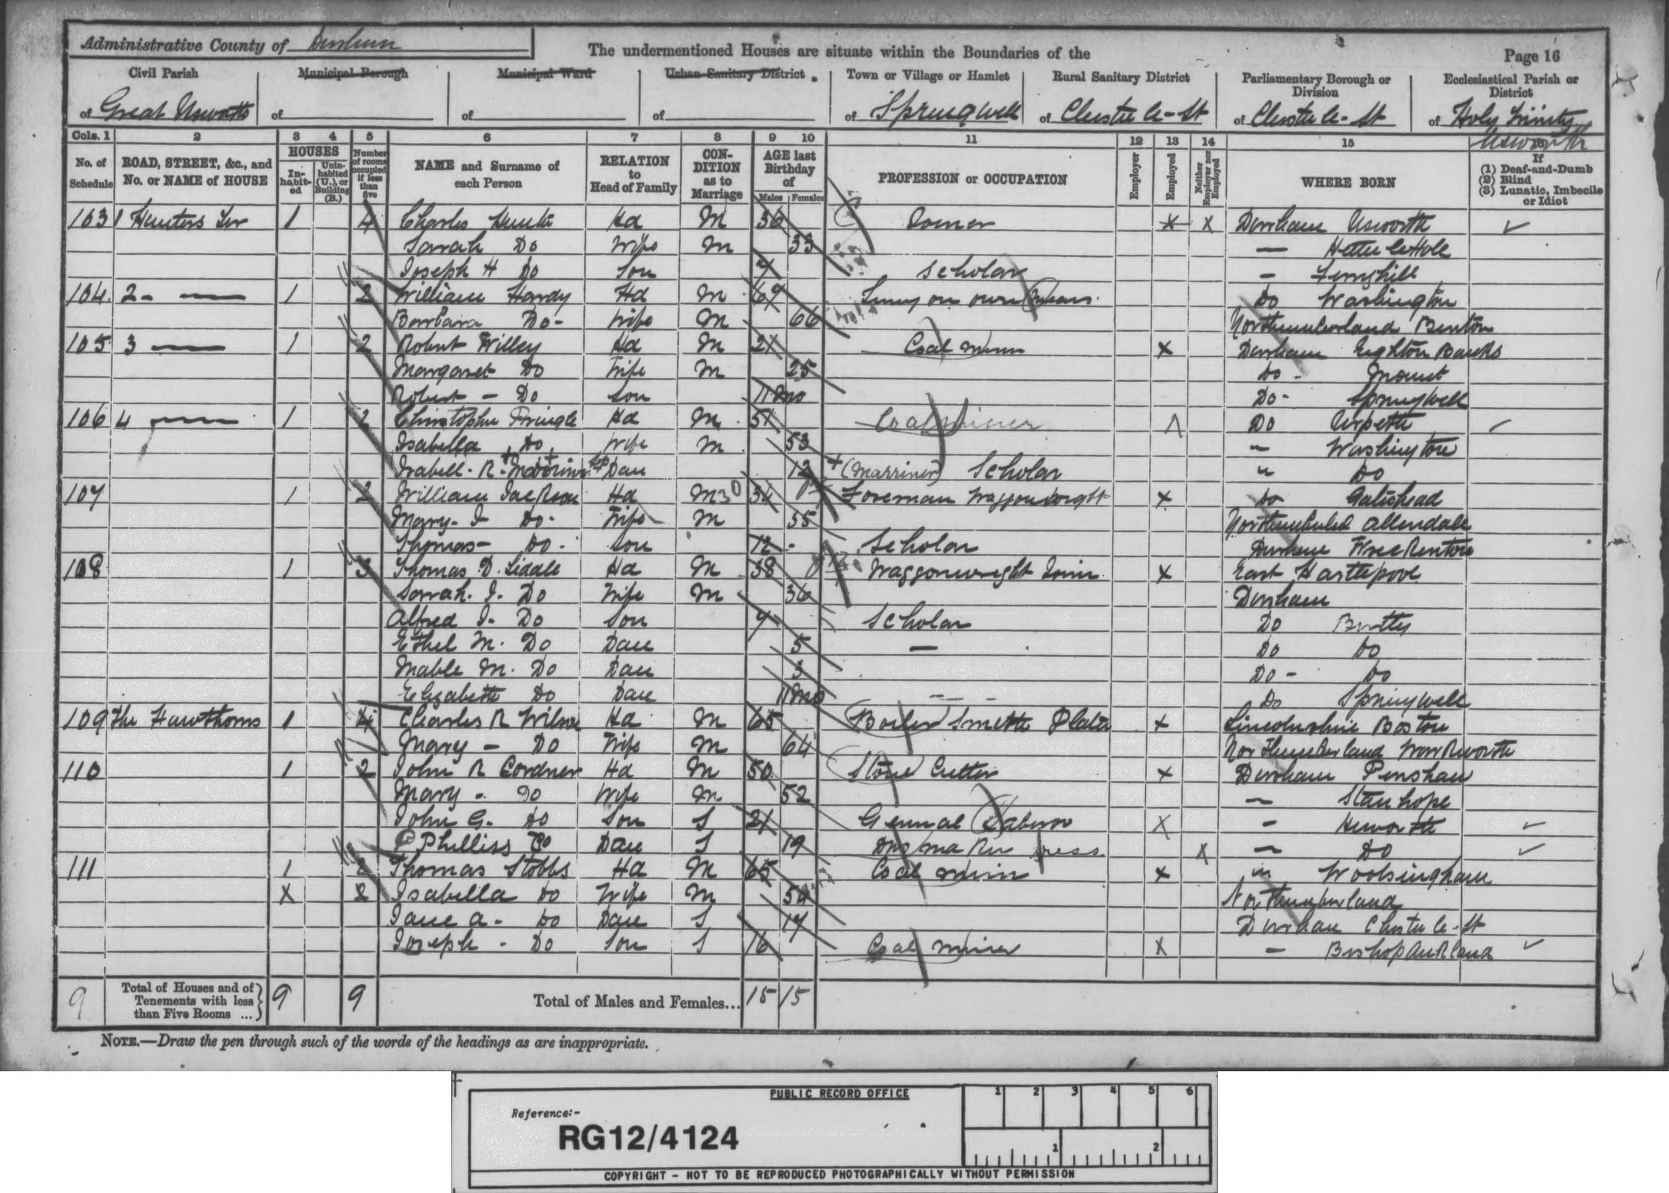 Administrative County of Durham
The undermentioned Houses are situate within the Boundaries of the
Page 16
Civil Parish
Municipal Borough
Municipal Ward
Urban Sanitary District
Town or Village or Hamlet
Rural Sanitary District
Parliamentary Borough or Division
Ecclesiastical Parish or District
of Great Usworth of of of of Springwell of Chester le-St of Chester le-St of Holy Trinity Usworth
Cols. 1 2 3 4 5 6 7 8 9 10 11 12 13 14 15 16
No. of Schedule
ROAD, STREET, &c., and No. or NAME of HOUSE
HOUSES
In-habit-ed
Unin-habited (U.), or Building (B.)
Number of rooms occupied if less than five
NAME and Surname of each Person
RELATION to Head of Family
CON-DITION as to Marriage
AGE last Birthday of
Males Females
PROFESSION or OCCUPATION
Employer
Employed
Neither Employer nor Employed
WHERE BORN
If
(1) Deaf-and-Dumb
(2) Blind
(3) Lunatic, Imbecile or Idiot
103 1 Hunters Ter 1 4 Charles Hd M 36 X X Durham Usworth
Sarah Do Wife M 33 — Hetton le Hole
Joseph H Do Son 7 Scholar — Ferryhill
104 2 - — 1 2 William Hardy Hd M 67 Living on own Means Do Washington
Barbara Do - Wife M 66 Northumberland Benton
105 3 — 1 2 Robert Willey Hd M 21 Coal Miner X Durham Eighton Banks
Margaret Do Wife M 25 Do - Mount
Robert - Do Son 11 Mo Do - Springwell
106 4 — 1 2 Christopher Pringle Hd M 51 Coal Miner X Do Urpeth
Isabella Do Wife M 53 — Washington
Isabell. R. Dau 12 (Marriner) Scholar " Do
107 1 2 William Jackson Hd M 34 Foreman Waggonwright X Do Gateshead
Mary J Do - Wife M 35 Northumberland Allendale
Thomas - Do - Son 12 Scholar Durham
108 1 3 Thomas D. Liddle Hd M 38 Waggonwright X East Hartlepool
Sarah. J. Do Wife M 36 Durham
Alfred J. Do Son 7 Scholar Do Birtley
Ethel M. Do Dau 5 — Do Do
Mable M. Do Dau 3 Do - Do
Elizabeth Do Dau 11 Mo Do Springwell
109 The Hawthorns 1 4 Charles R Wilson Hd M 65 Boiler Smith Plater X Lincolnshire Boston
Mary - Do Wife M 64 Northumberland Warkworth
110 1 2 John R Cordner Hd M 50 Stone Cutter X Durham Penshaw
Mary - Do Wife M 52 — Stanhope
John G. Do Son S 21 General Labourer X — Heworth
Phylliss Do Dau S 19 Dressmaker X — Do
111 1 2 Thomas Stobbs Hd M 65 Coal Miner X " Wolsingham
X 2 Isabella Do Wife M Northumberland
Jane A - Do Dau S 17 Durham Chester le-St
Joseph - Do Son S 16 Coal Miner X — Bishop Auckland
9 Total of Houses and of Tenements with less than Five Rooms ... 9 9 Total of Males and Females... 15 15
NOTE.—Draw the pen through such of the words of the headings as are inappropriate.
PUBLIC RECORD OFFICE
1 2 3 4 5 6
Reference:-
RG12/4124
1 2
COPYRIGHT - NOT TO BE REPRODUCED PHOTOGRAPHICALLY WITHOUT PERMISSION